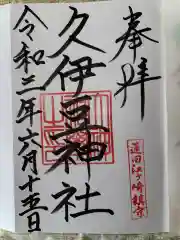 奉拝
蓮田江ヶ崎鎮守
久伊豆神社
令和三年六月十五日